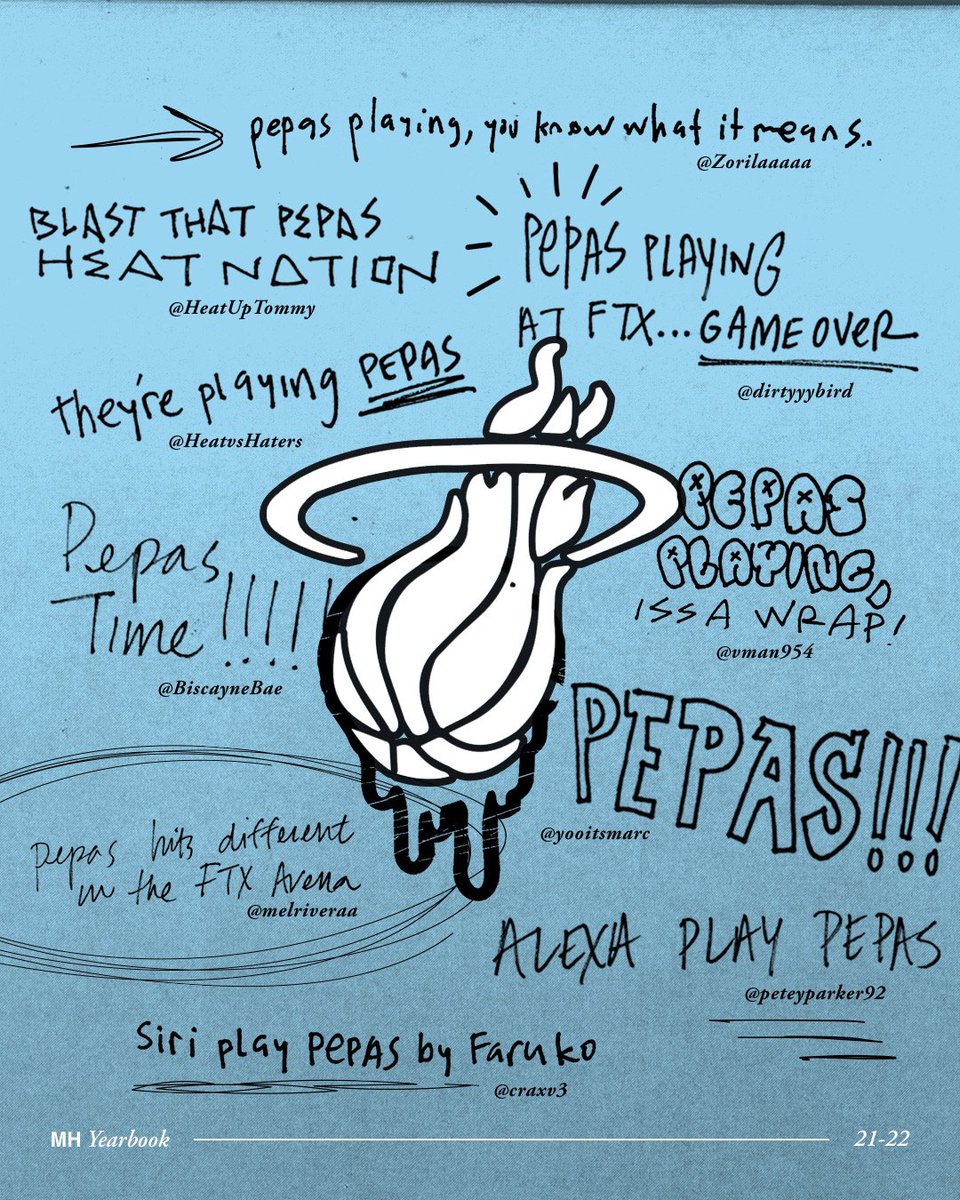 pepas playing, you know what it means..
@Zorilaaaaa
BLAST THAT PEPAS
HEAT NATION
@HeatUpTommy
PEPAS PLAYING
AT FTX... GAME OVER
@dirtyyybird
they're playing PEPAS
@HeatvsHaters
PEPAS
PLAYING,
ISSA WRAP!
@vman954
Pepas
Time!!!!!
@BiscayneBae
PEPAS!!!
@yooitsmarc
pepas hits different
in the FTX Arena
@melriveraa
ALEXA PLAY PEPAS
@peteyparker92
Siri play PEPAS by Faruko
@craxv3
MH Yearbook
21-22